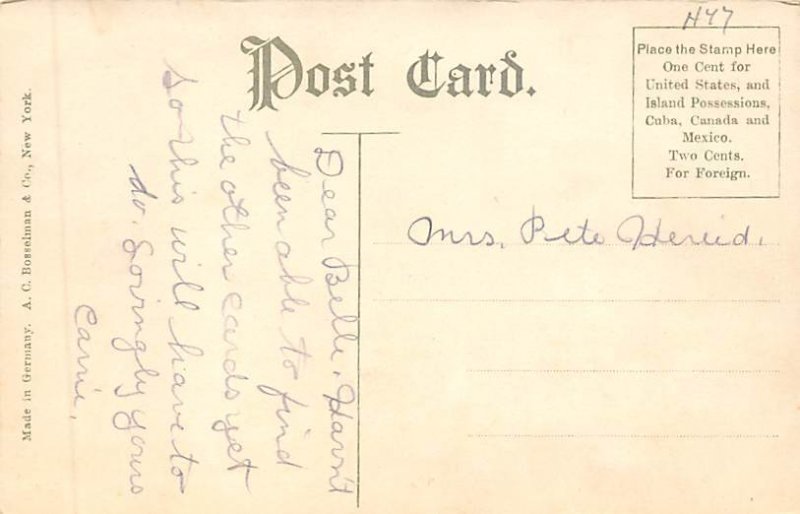 H47
Post Card.
Place the Stamp Here
One Cent for
United States, and
Island Possessions,
Cuba, Canada and
Mexico.
Two Cents.
For Foreign.
Dear Belle, Havn't
been able to find
the other cards yet
so this will have to
do. Lovingly yours
Carrie.
Mrs. Pete Hereid.
Made in Germany. A. C. Bosselman & Co., New York.